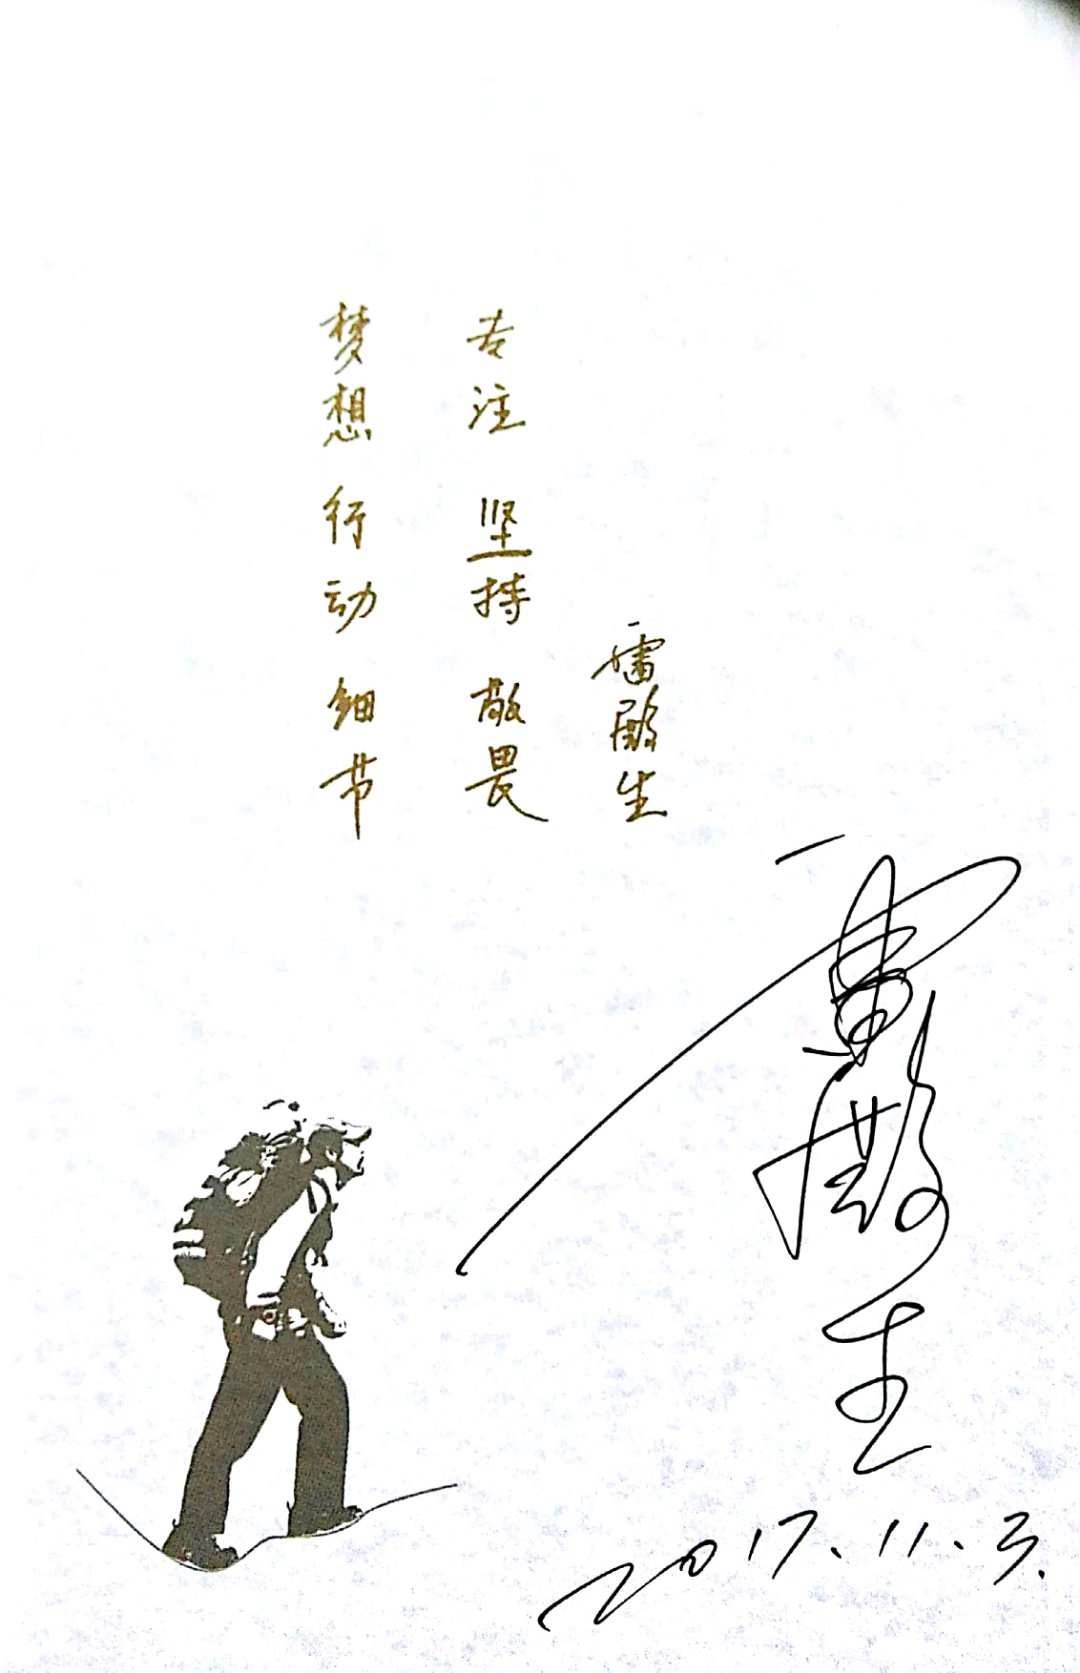 梦想 行动 细节
专注 坚持 敬畏
雷殿生
雷殿生
2017.11.3.